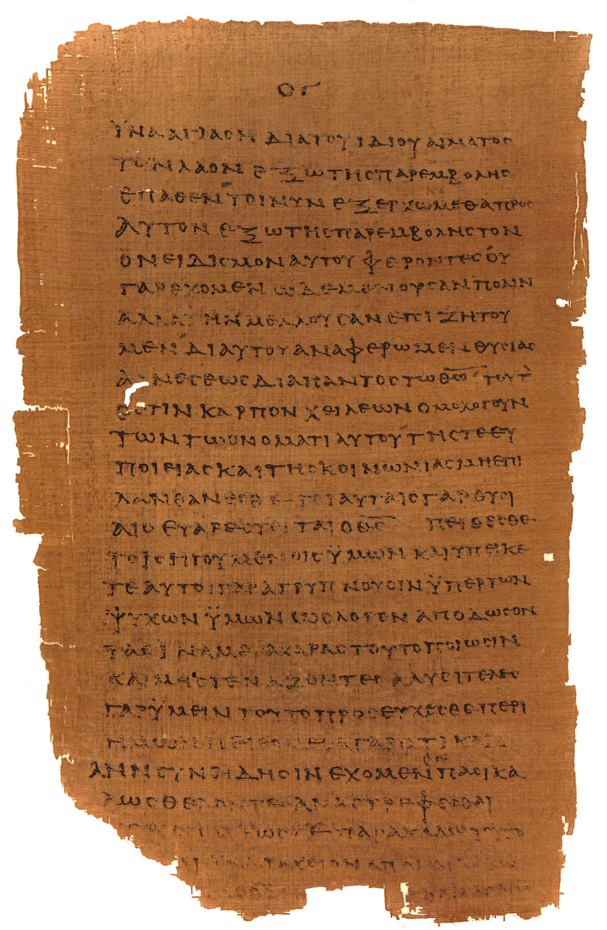 ΟΓ
ΪΝΑ ΑΓΙΑΣΗ ΔΙΑ ΤΟΥ ΙΔΙΟΥ ΑΙΜΑΤΟΣ
ΤΟΝ ΛΑΟΝ ΕΞΩ ΤΗΣ ΠΑΡΕΜΒΟΛΗΣ
ΕΠΑΘΕΝ ΤΟΙΝΥΝ ΕΞΕΡΧΩΜΕΘΑ ΠΡΟΣ
ΑΥΤΟΝ ΕΞΩ ΤΗΣ ΠΑΡΕΜΒΟΛΗΣ ΤΟΝ
ΟΝΕΙΔΙΣΜΟΝ ΑΥΤΟΥ ΦΕΡΟΝΤΕΣ ΟΥ
ΓΑΡ ΕΧΟΜΕΝ ΩΔΕ ΜΕΝΟΥΣΑΝ ΠΟΛΙΝ
ΑΛΛΑ ΤΗΝ ΜΕΛΛΟΥΣΑΝ ΕΠΙΖΗΤΟΥ
ΜΕΝ ΔΙ ΑΥΤΟΥ ΑΝΑΦΕΡΩΜΕΝ ΘΥΣΙΑΣ
ΑΙΝΕΣΕΩΣ ΔΙΑ ΠΑΝΤΟΣ ΤΩ ΘΩ̅ ΤΟΥΤ
ΕΣΤΙΝ ΚΑΡΠΟΝ ΧΕΙΛΕΩΝ ΟΜΟΛΟΓΟΥΝ
ΤΩΝ ΤΩ ΟΝΟΜΑΤΙ ΑΥΤΟΥ ΤΗΣ ΤΕ ΕΥ
ΠΟΙΕΙΑΣ ΚΑΙ ΤΗΣ ΚΟΙΝΩΝΙΑΣ ΜΗ ΕΠΙ
ΛΑΝΘΑΝΕΣΘΕ ΤΟΙΑΥΤΑΙΣ ΓΑΡ ΘΥΣΙ
ΑΙΣ ΕΥΑΡΕΣΤΕΙΤΑΙ Ο Θ̅Σ̅ ΠΕΙΘΕΣΘΕ
ΤΟΙΣ ΗΓΟΥΜΕΝΟΙΣ ΫΜΩΝ ΚΑΙ ΥΠΕΙΚΕ
ΤΕ ΑΥΤΟΙ ΓΑΡ ΑΓΡΥΠΝΟΥΣΙΝ ΫΠΕΡ ΤΩΝ
ΨΥΧΩΝ ΫΜΩΝ ΩΣ ΛΟΓΟΝ ΑΠΟΔΩΣΟΝ
ΤΑΣ ΙΝΑ ΜΕΤΑ ΧΑΡΑΣ ΤΟΥΤΟ ΠΟΙΩΣΙΝ
ΚΑΙ ΜΗ ΣΤΕΝΑΖΟΝΤΕΣ ΑΛΥΣΙΤΕΛΕΣ
ΓΑΡ ΥΜΕΙΝ ΤΟΥΤΟ ΠΡΟΣΕΥΧΕΣΘΕ ΠΕΡΙ
ΗΜΩΝ ΠΕΙΘΟΜΕΘΑ ΓΑΡ ΟΤΙ ΚΑ
ΛΗΝ ΣΥΝΕΙΔΗΣΙΝ ΕΧΟΜΕΝ ΕΝ ΠΑΣΙ ΚΑ
ΛΩΣ ΘΕΛΟΝΤΕΣ ΑΝΑΣΤΡΕΦΕΣΘΑΙ
ΠΑΡΑΚΑΛΩ ΤΟΥΤΟ
ΤΑΧΕΙΟΝ